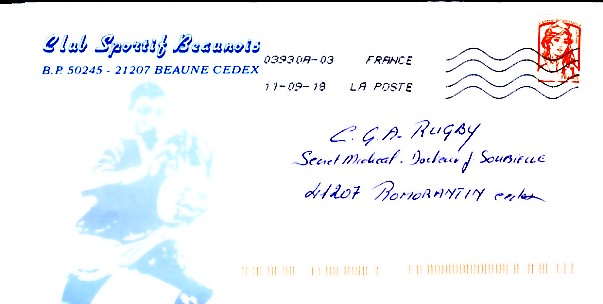 Club Sportif Beaunois
B.P. 50245 - 21207 BEAUNE CEDEX
03930A-03 FRANCE
11-09-18 LA POSTE
C.G.A. RUGBY
Secret Médical. Docteur J SOUBIELLE
41207 ROMORANTIN cedex